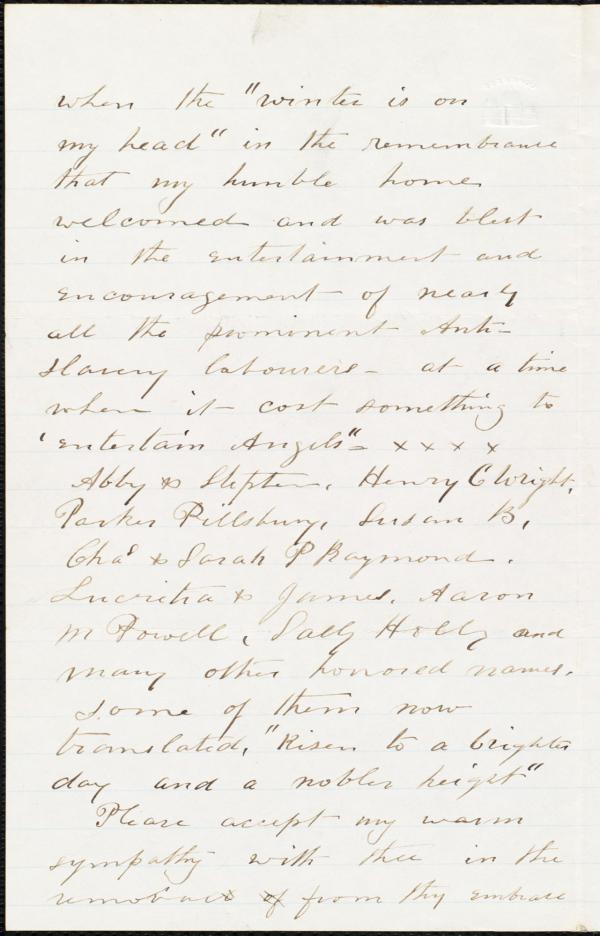 when the "winter is on
my head" in the remembrance
that my humble home
welcomed and was blest
in the entertainment and
encouragement of nearly
all the prominent Anti-
slavery labourers - at a time
when it cost something to
'entertain Angels" = x x x x
Abby & Stephen, Henry C Wright,
Parker Pillsbury, Susan B,
Chas & Sarah P Raymond.
Lucretia & James, Aaron
M Powell, Sally Holly and
many other honored names.
some of them now
translated, "Risen to a brighter
day and a nobler height"
Please accept my warm
sympathy with thee in the
from thy embrace